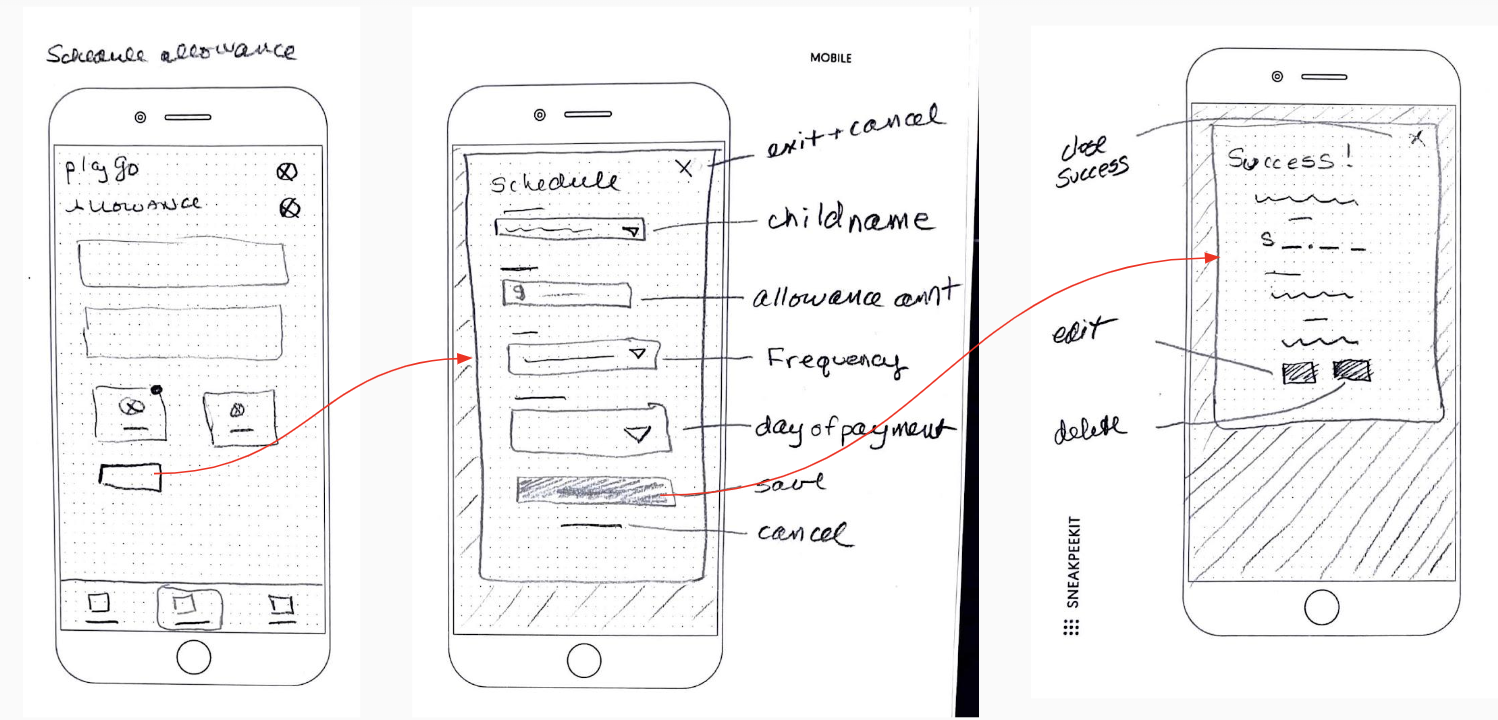 Schedule allowance
play go
Allowance
MOBILE
exit + cancel
Schedule
X
child name
allowance amnt
Frequency
day of payment
save
cancel
close
Success
X
Success!
S
edit
delete
SNEAKPEEKIT